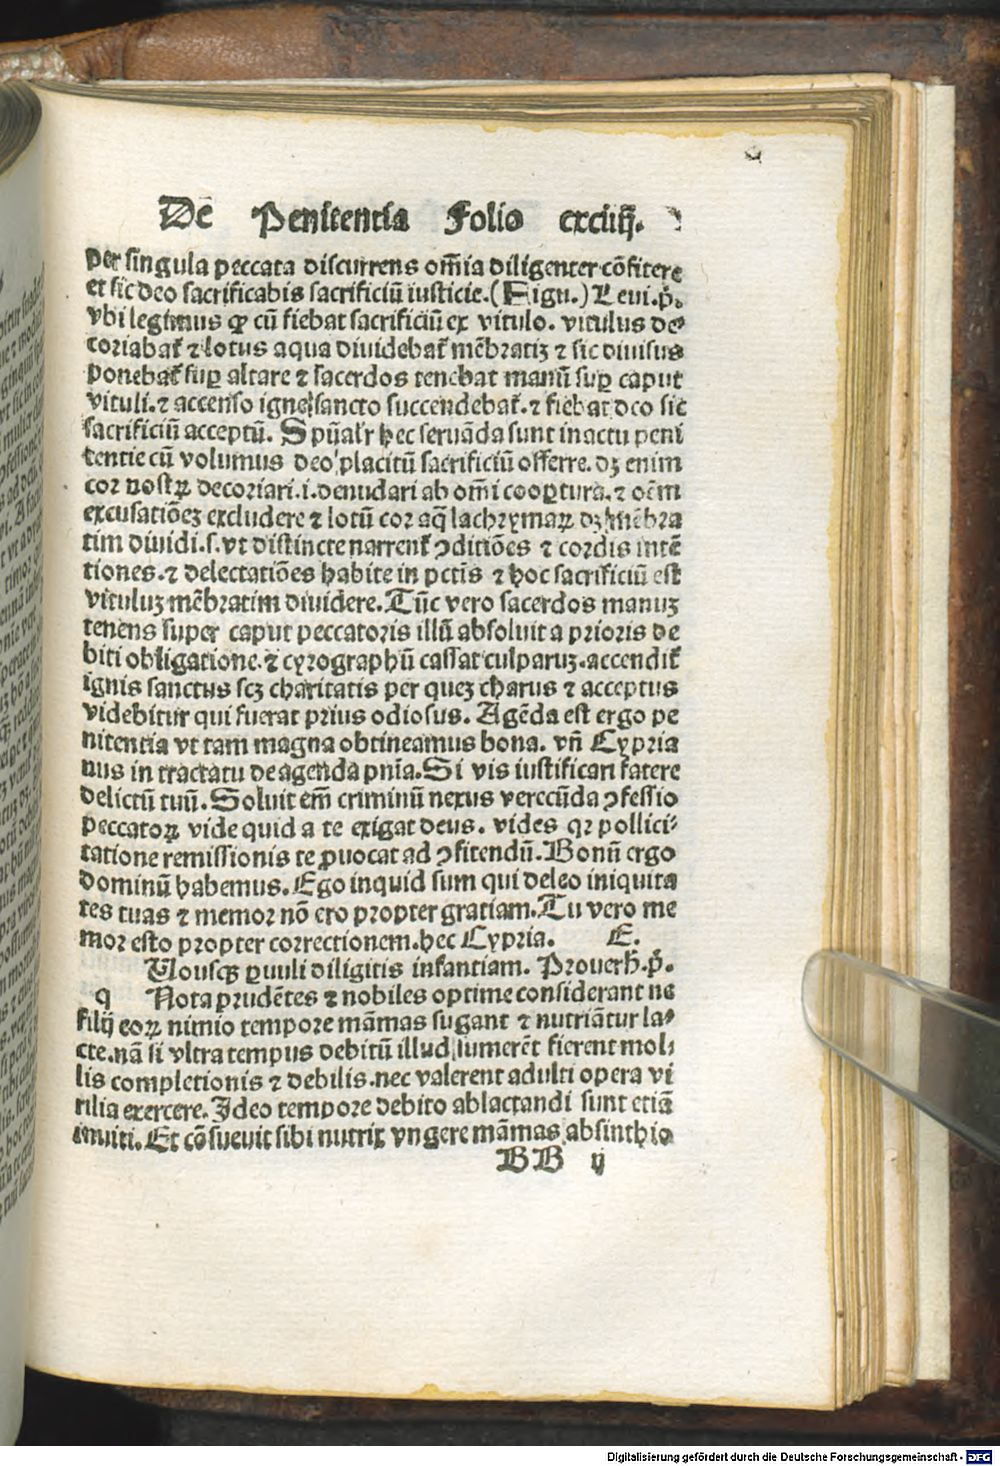 De Penitentia Folio cxciiij.
per singula peccata discurrens om̄ia diligenter cōfitere
et sic deo sacrificabis sacrificiū iusticie. (Figu.) Leui.p̊.
vbi legimus ꝙ cū fiebat sacrificiū ex vitulo. vitulus de⸗
coriabat᷑ ⁊ lotus aqua diuidebat᷑ mēbratiꝫ ⁊ sic diuisus
ponebat᷑ suꝑ altare ⁊ sacerdos tenebat manū suꝑ caput
vituli.⁊ accenso igne sancto succendebat᷑.⁊ fiebat deo sic
sacrificiū acceptū. Spūal'r hec seruāda sunt in actu peni
tentie cū volumus deo placitū sacrificiū offerre. dꝫ enim
cor nostꝝ decoriari.i.denudari ab om̄i cooꝑtura.⁊ oēm
excusatiōeꝫ excludere ⁊ lotū cor aq̄ lachrymaꝝ dꝫ mēbra
tim diuidi.s.vt distincte narrent᷑ ↄditiōes ⁊ cordis intē
tiones.⁊ delectatiōes habite in pctīs ⁊ hoc sacrificiū est
vituluꝫ mēbratim diuidere. Tūc vero sacerdos manuꝫ
tenens super caput peccatoris illū absoluit a prioris de
biti obligatione.⁊ cyrographū cassat culparuꝫ.accendit᷑
ignis sanctus scꝫ charitatis per queꝫ charus ⁊ acceptus
videbitur qui fuerat prius odiosus. Agēda est ergo pe
nitentia vt tam magna obtineamus bona. vn̄ Cypria
nus in tractatu de agenda pn̄ia. Si vis iustificari fatere
delictū tuū. Soluit em̄ criminū nexus verecūda ↄfessio
peccatoꝝ vide quid a te exigat deus. vides qꝛ pollici⸗
tatione remissionis te ꝓuocat ad ↄfitendū. Bonū ergo
dominū habemus. Ego inquid sum qui deleo iniquita
tes tuas ⁊ memor nō ero propter gratiam. Tu vero me
mor esto propter correctionem.hec Cypria. E.
Uousqꝫ ꝑuuli diligitis infantiam. Prouerb̄.p̊.
q Nota prudētes ⁊ nobiles optime considerant ne
filij eoꝝ nimio tempore māmas sugant ⁊ nutriātur la⸗
cte.nā si vltra tempus debitū illud sumerēt fierent mol⸗
lis completionis ⁊ debilis.nec valerent adulti opera vi
rilia exercere. Ideo tempore debito ablactandi sunt etiā
inuiti. Et cōsueuit sibi nutrix vngere māmas absinthio
BB ij
Digitalisierung gefördert durch die Deutsche Forschungsgemeinschaft - DFG